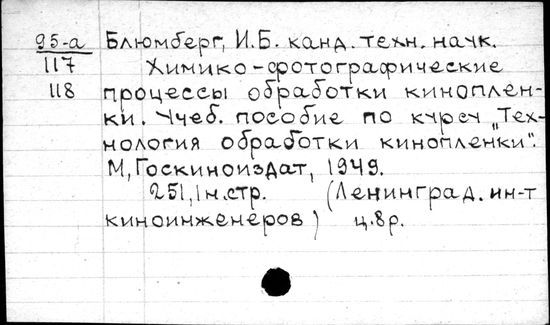 95-а Блюмберг, И.Б. канд. техн. наук.
117 Химико-фотографические
118 процессы обработки киноплен-
ки. Учеб. пособие по курсу „Тех-
нология обработки кинопленки".
М, Госкиноиздат, 1949.
251, 1 н.стр. (Ленинград. ин-т
киноинженеров) ц.8р.